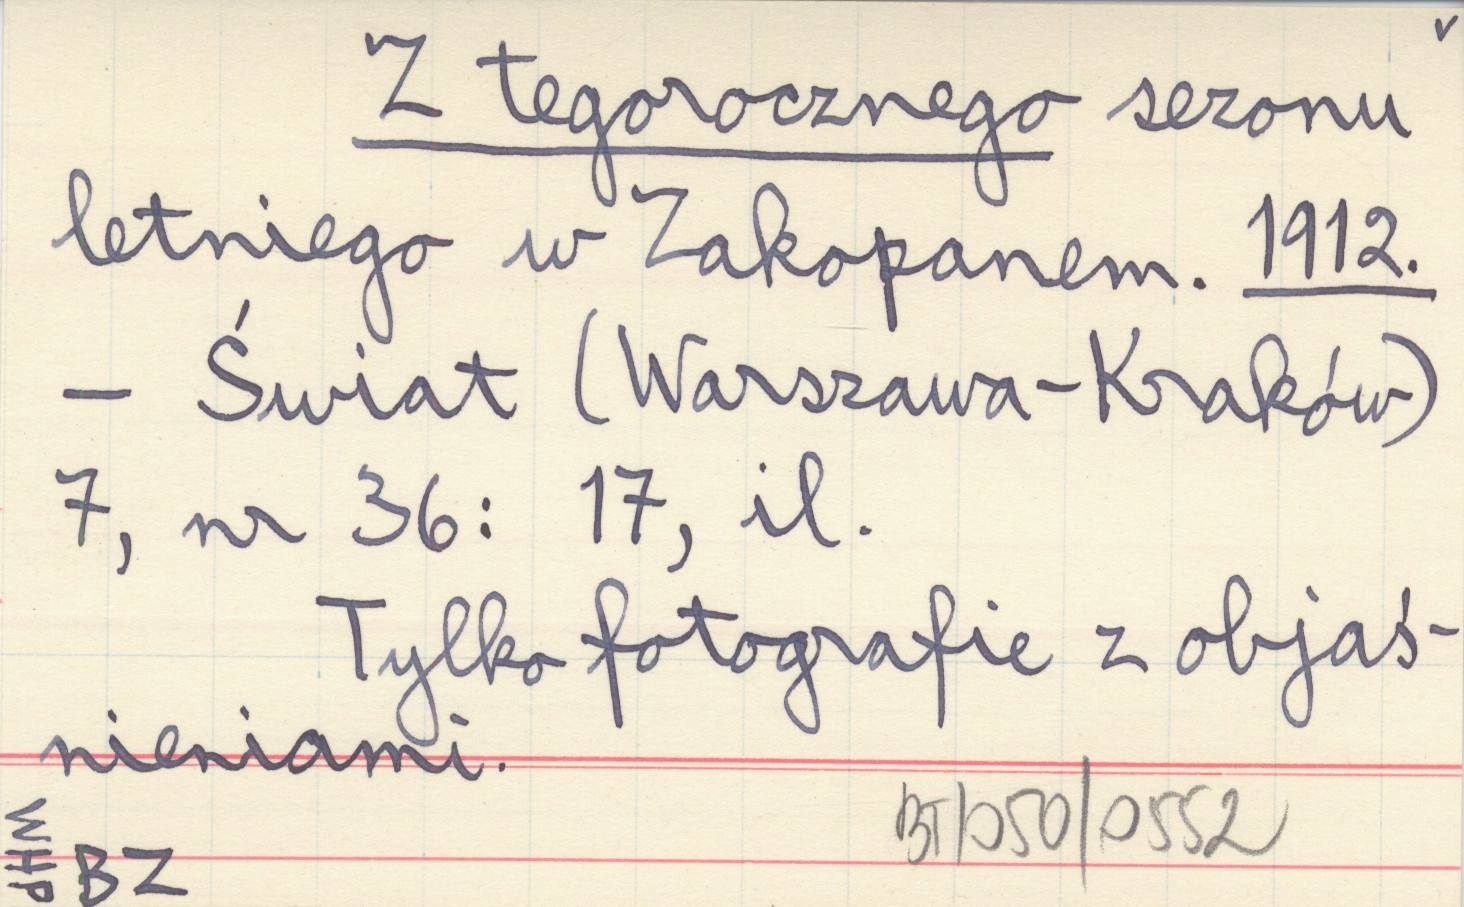 v
Z tegorocznego sezonu
letniego w Zakopanem. 1912.
– Świat (Warszawa-Kraków)
7, nr 36: 17, il.
Tylko fotografie z objaś-
nieniami.
BT/050/0552
WHP
BZ